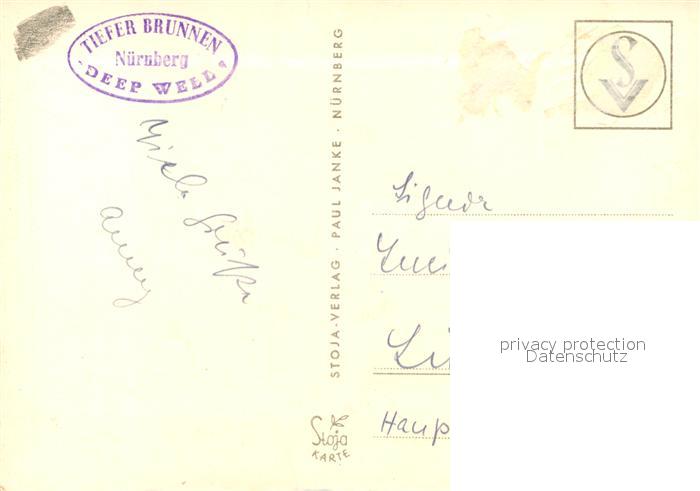 TIEFER BRUNNEN
Nürnberg
DEEP WELL
Viele Grüße
STOJA-VERLAG · PAUL JANKE · NÜRNBERG
Stoja
KARTE
SV
privacy protection
Datenschutz
Haup